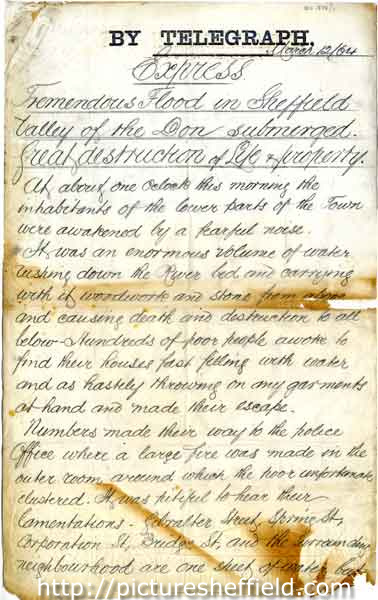 BY TELEGRAPH.
March 12/64
Express
Tremendous Flood in Sheffield
Valley of the Don submerged.
Great destruction of Life & property.
At about one oclock this morning the
inhabitants of the lower parts of the Town
were awakened by a fearful noise.
It was an enormous volume of water
rushing down the River bed and carrying
with it woodwork and stone from above
and causing death and destruction to all
below. Hundreds of poor people awoke to
find their houses fast filling with water
and as hastely throwing on any garments
at hand and made their escape.
Numbers made their way to the police
Office where a large fire was made in the
outer room around which the poor unfortunate
clustered. It was pitiful to hear their
lamentations - Gibralter Street, Spring St,
Corporation St, Bridge St, and the surrounding
neighbourhood are one sheet of water
http://picturesheffield.com/